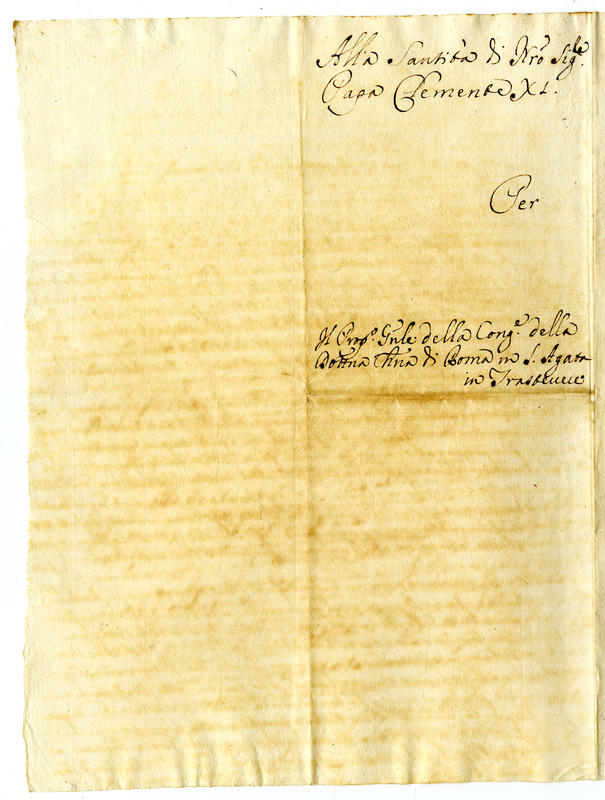 Alla Santità di Nrõ Sigle.
Papa Clemente XI.
Per
Il Propo. Gnle della Conge. della
Dottna Chna di Roma in S. Agata
in Trastevere